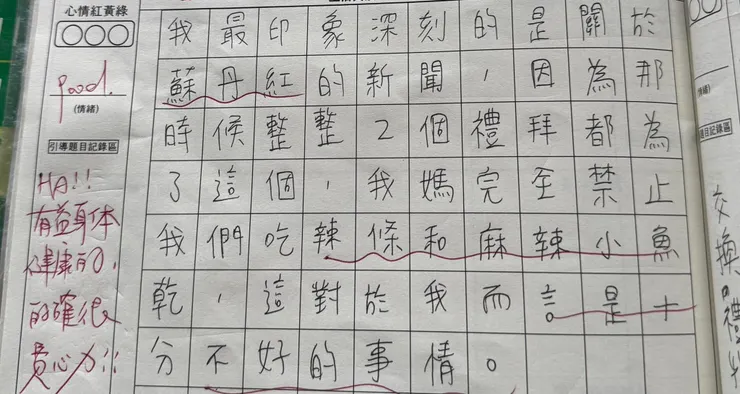 心情紅黃綠
good.
(情緒)
引導題目記錄區
HA!!
有益身体
健康的,
的確很
費心力!!
我最印象深刻的是關於
蘇丹紅的新聞,因為那
時候整整2個禮拜都為
了這個,我媽完全禁止
我們吃辣條和麻辣小魚
乾,這對於我而言是十
分不好的事情。
(情緒)
題目記錄區
交換